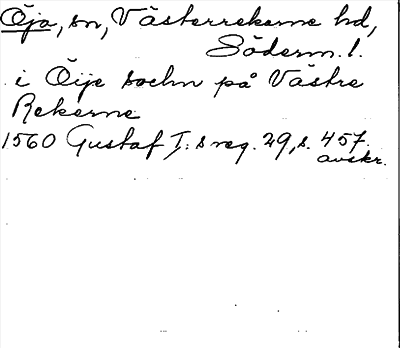 Öja, sn, Västerrekarne hd,
Söderm. l.
i Öije sochn på Västre
Rekerne
1560 Gustaf I:s reg. 29, s. 457.
avskr.